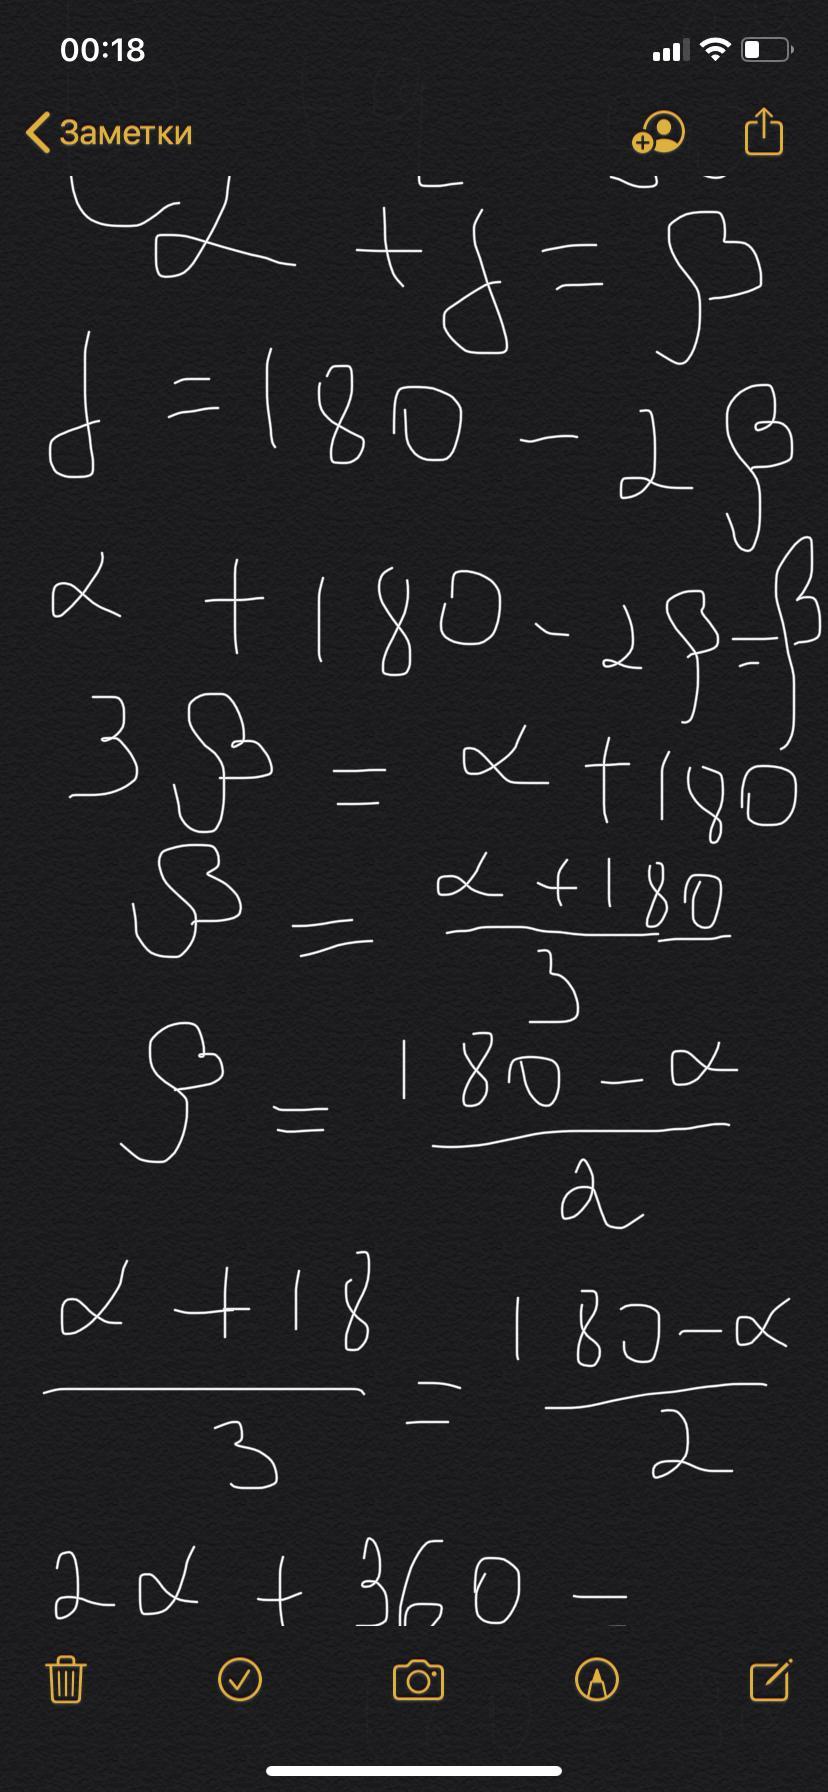 00:18
Заметки
α + γ = β
γ = 180 - 2β
α + 180 - 2β = β
3β = α + 180
β = α + 180
3
β = 180 - α
2
α + 18 = 180 - α
3 2
2α + 360 =